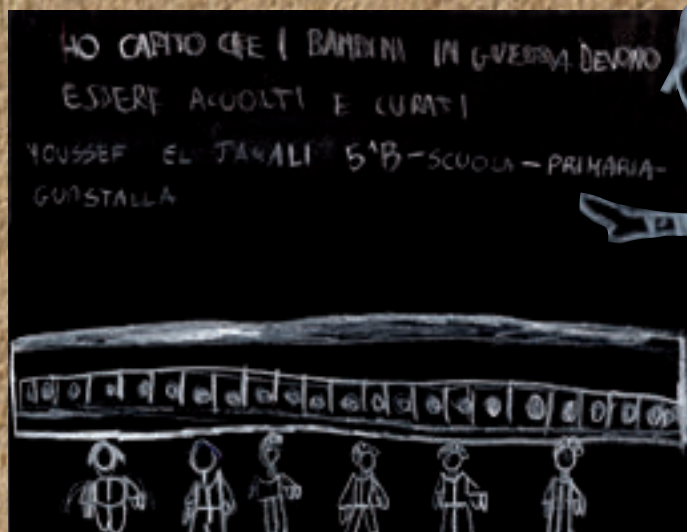 HO CAPITO CHE I BAMBINI IN GUERRA DEVONO
ESSERE ACCOLTI E CURATI
YOUSSEF EL JAMALI 5^B-SCUOLA-PRIMARIA-
GUASTALLA